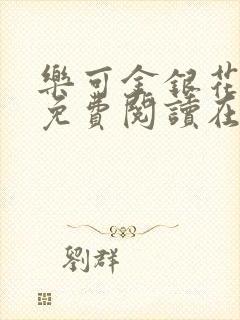 樂可金銀花
免費閱讀在
劉群